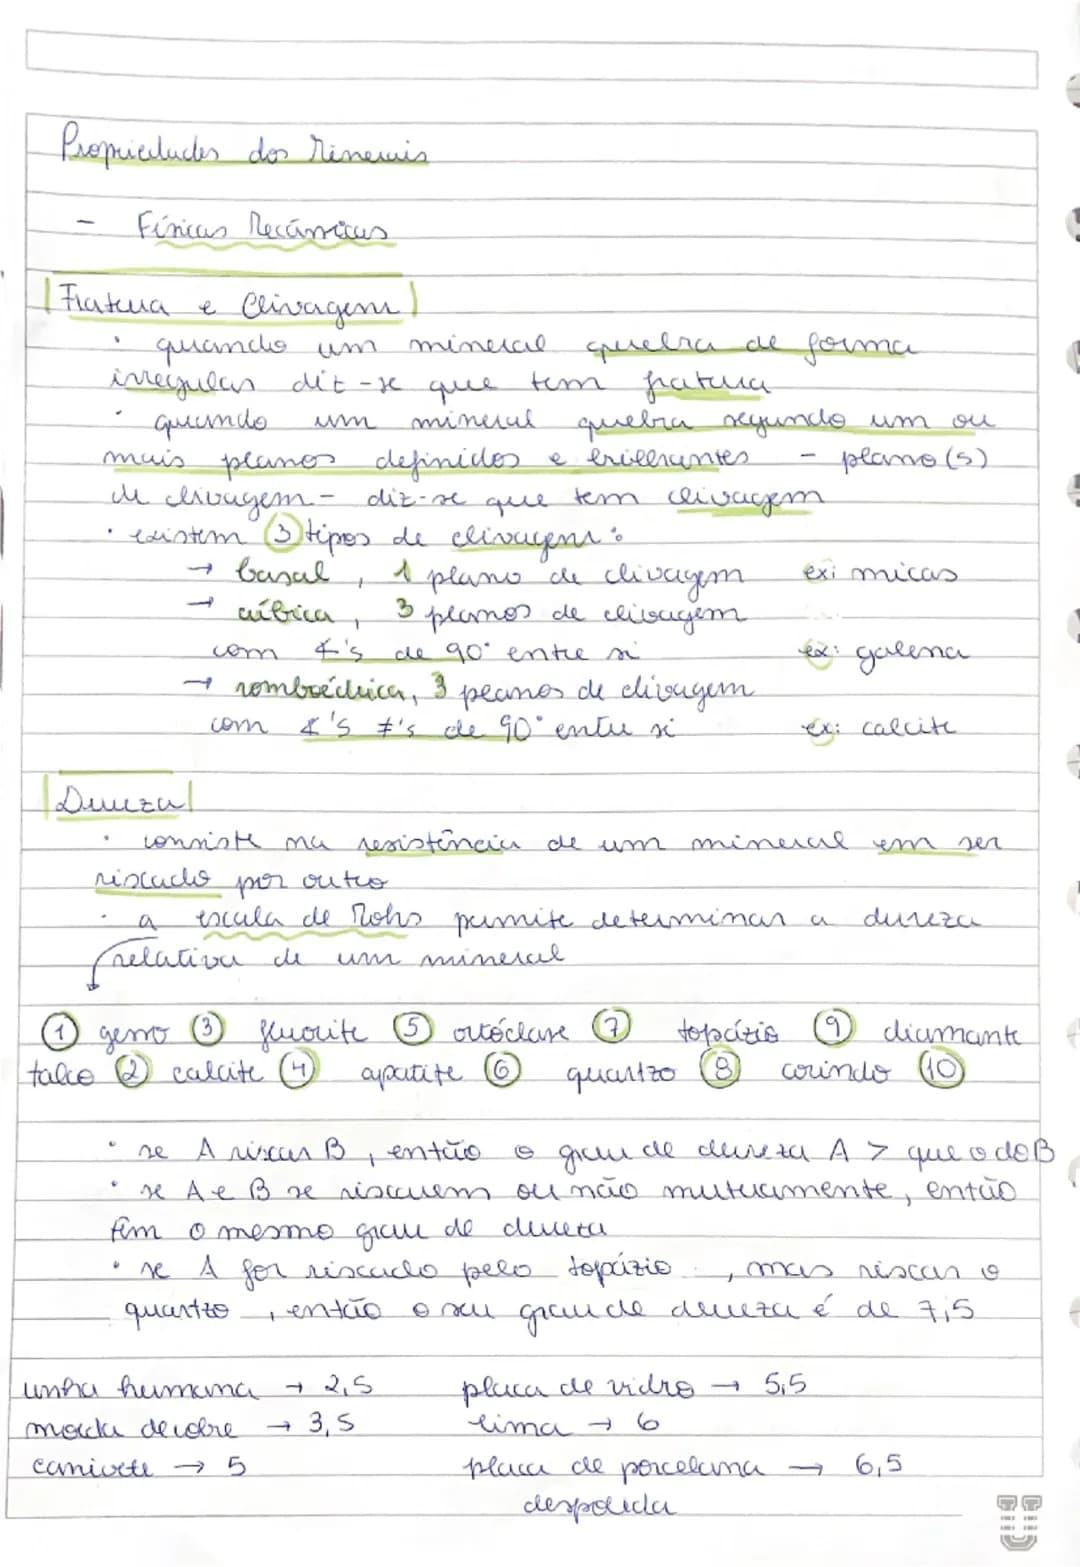 Propriedades dos Minerais
- Físicas Mecânicas
Fratura e Clivagem
• quando um mineral quebra de forma
irregular diz-se que tem fratura
• quando um mineral quebra segundo um ou
mais planos definidos e brilhantes - plano(s)
de clivagem - diz-se que tem clivagem
• existem 3 tipos de clivagem:
→ basal, 1 plano de clivagem ex: micas
→ cúbica, 3 planos de clivagem
com ∡'s de 90° entre si ex: galena
→ romboédrica, 3 planos de clivagem
com ∡'s ≠'s de 90° entre si ex: calcite
Dureza
• consiste na resistência de um mineral em ser
riscado por outro
• a escala de Mohs permite determinar a dureza
relativa de um mineral
① gesso ③ fluorite ⑤ ortóclase ⑦ topázio ⑨ diamante
talco ② calcite ④ apatite ⑥ quartzo ⑧ corindo ⑩
• se A riscar B, então o grau de dureza A > que o do B
• se A e B se riscarem ou não mutuamente, então
têm o mesmo grau de dureza
• se A for riscado pelo topázio, mas riscar o
quartzo, então o seu grau de dureza é de 7,5
unha humana → 2,5 placa de vidro → 5,5
moeda de cobre → 3,5 lima → 6
canivete → 5 placa de porcelana → 6,5
despolida
U